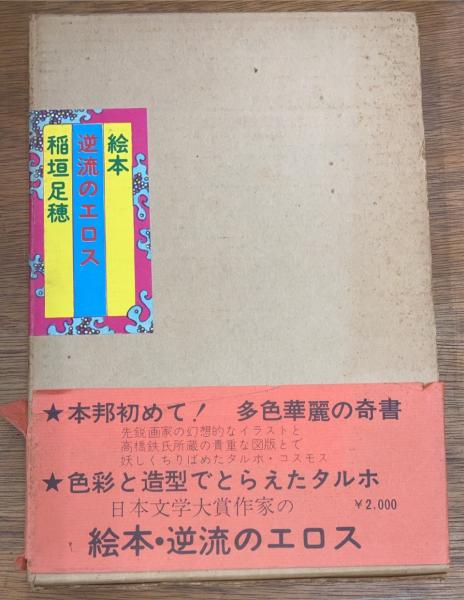 絵本
逆流のエロス
稲垣足穂
★本邦初めて! 多色華麗の奇書
先鋭画家の幻想的なイラストと
高橋鉄氏所蔵の貴重な図版とで
妖しくちりばめたタルホ・コスモス
★色彩と造型でとらえたタルホ
日本文学大賞作家の ￥2.000
絵本・逆流のエロス